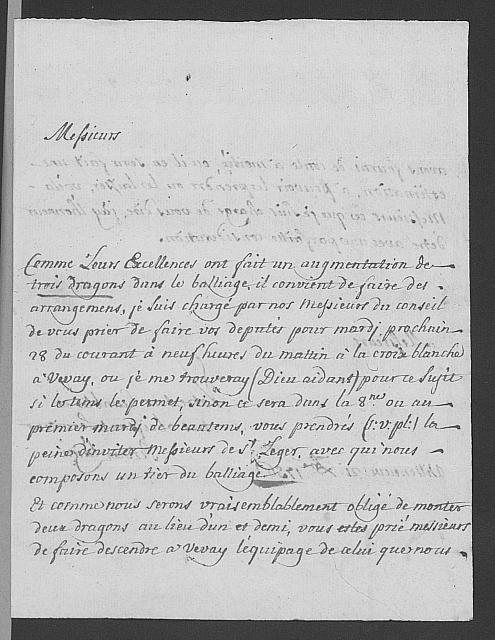 Messieurs
Comme Leurs Excellences ont fait un augmentation de
trois dragons dans le balliage, il convient de faire des
arrangemens, je suis chargé par nos Messieurs du conseil
de vous prier de faire vos deputés pour mardj prochain
28 du courant à neuf heures du mattin à la croix blanche
a Vevay, ou je me trouveray (Dieu aidant) pour ce sujet
si le tems le permet, sinon ce sera dans la 8ne ou au
premier mardj de beautems, vous prendrés (s:v:pl:) la
peine d'inviter Messieurs de St Leger, avec qui nous
composons un tier du balliage
Et comme nous serons vraisemblablement obligé de monter
deux dragons au lieu dun et demi, vous estes prié messieurs
de faire descendre a Vevay l'equipage de celui que nous